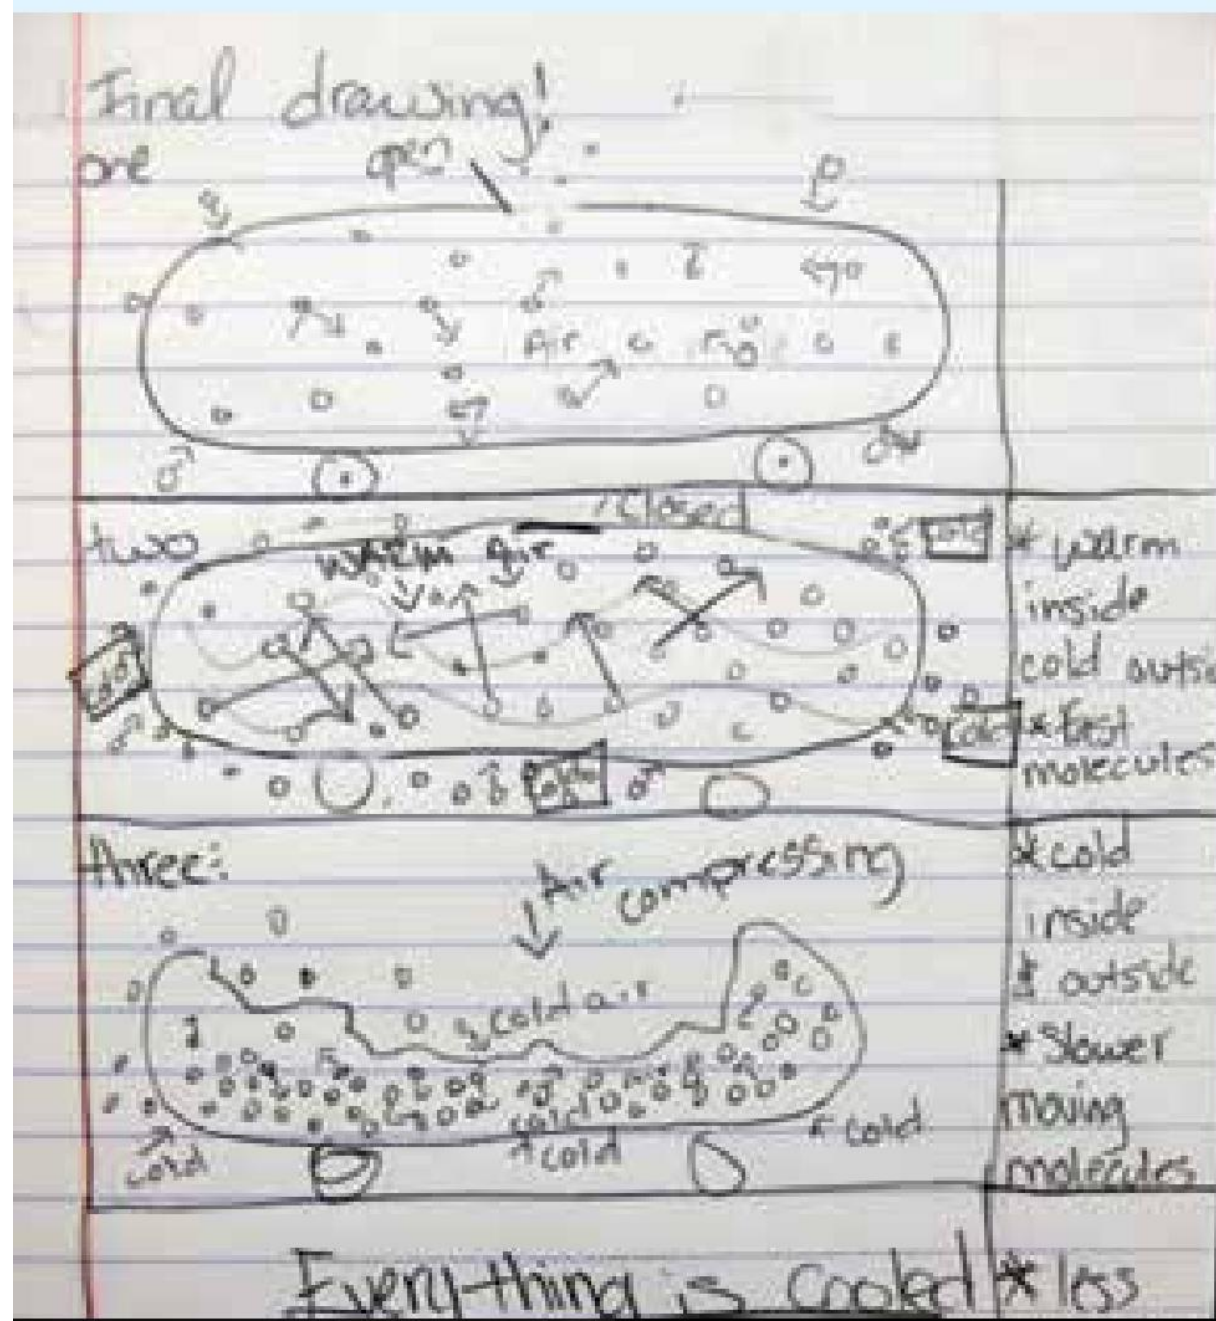 Final drawing!
one
open
Air
two
Closed
warm Air
cold
cold
cold
cold
* warm
inside
cold outsi
* fast
molecules
three:
Air
compressing
cold air
Air
cold
cold
cold
cold
* cold
inside
& outside
* Slower
moving
molecules
Everything is cooled
* less